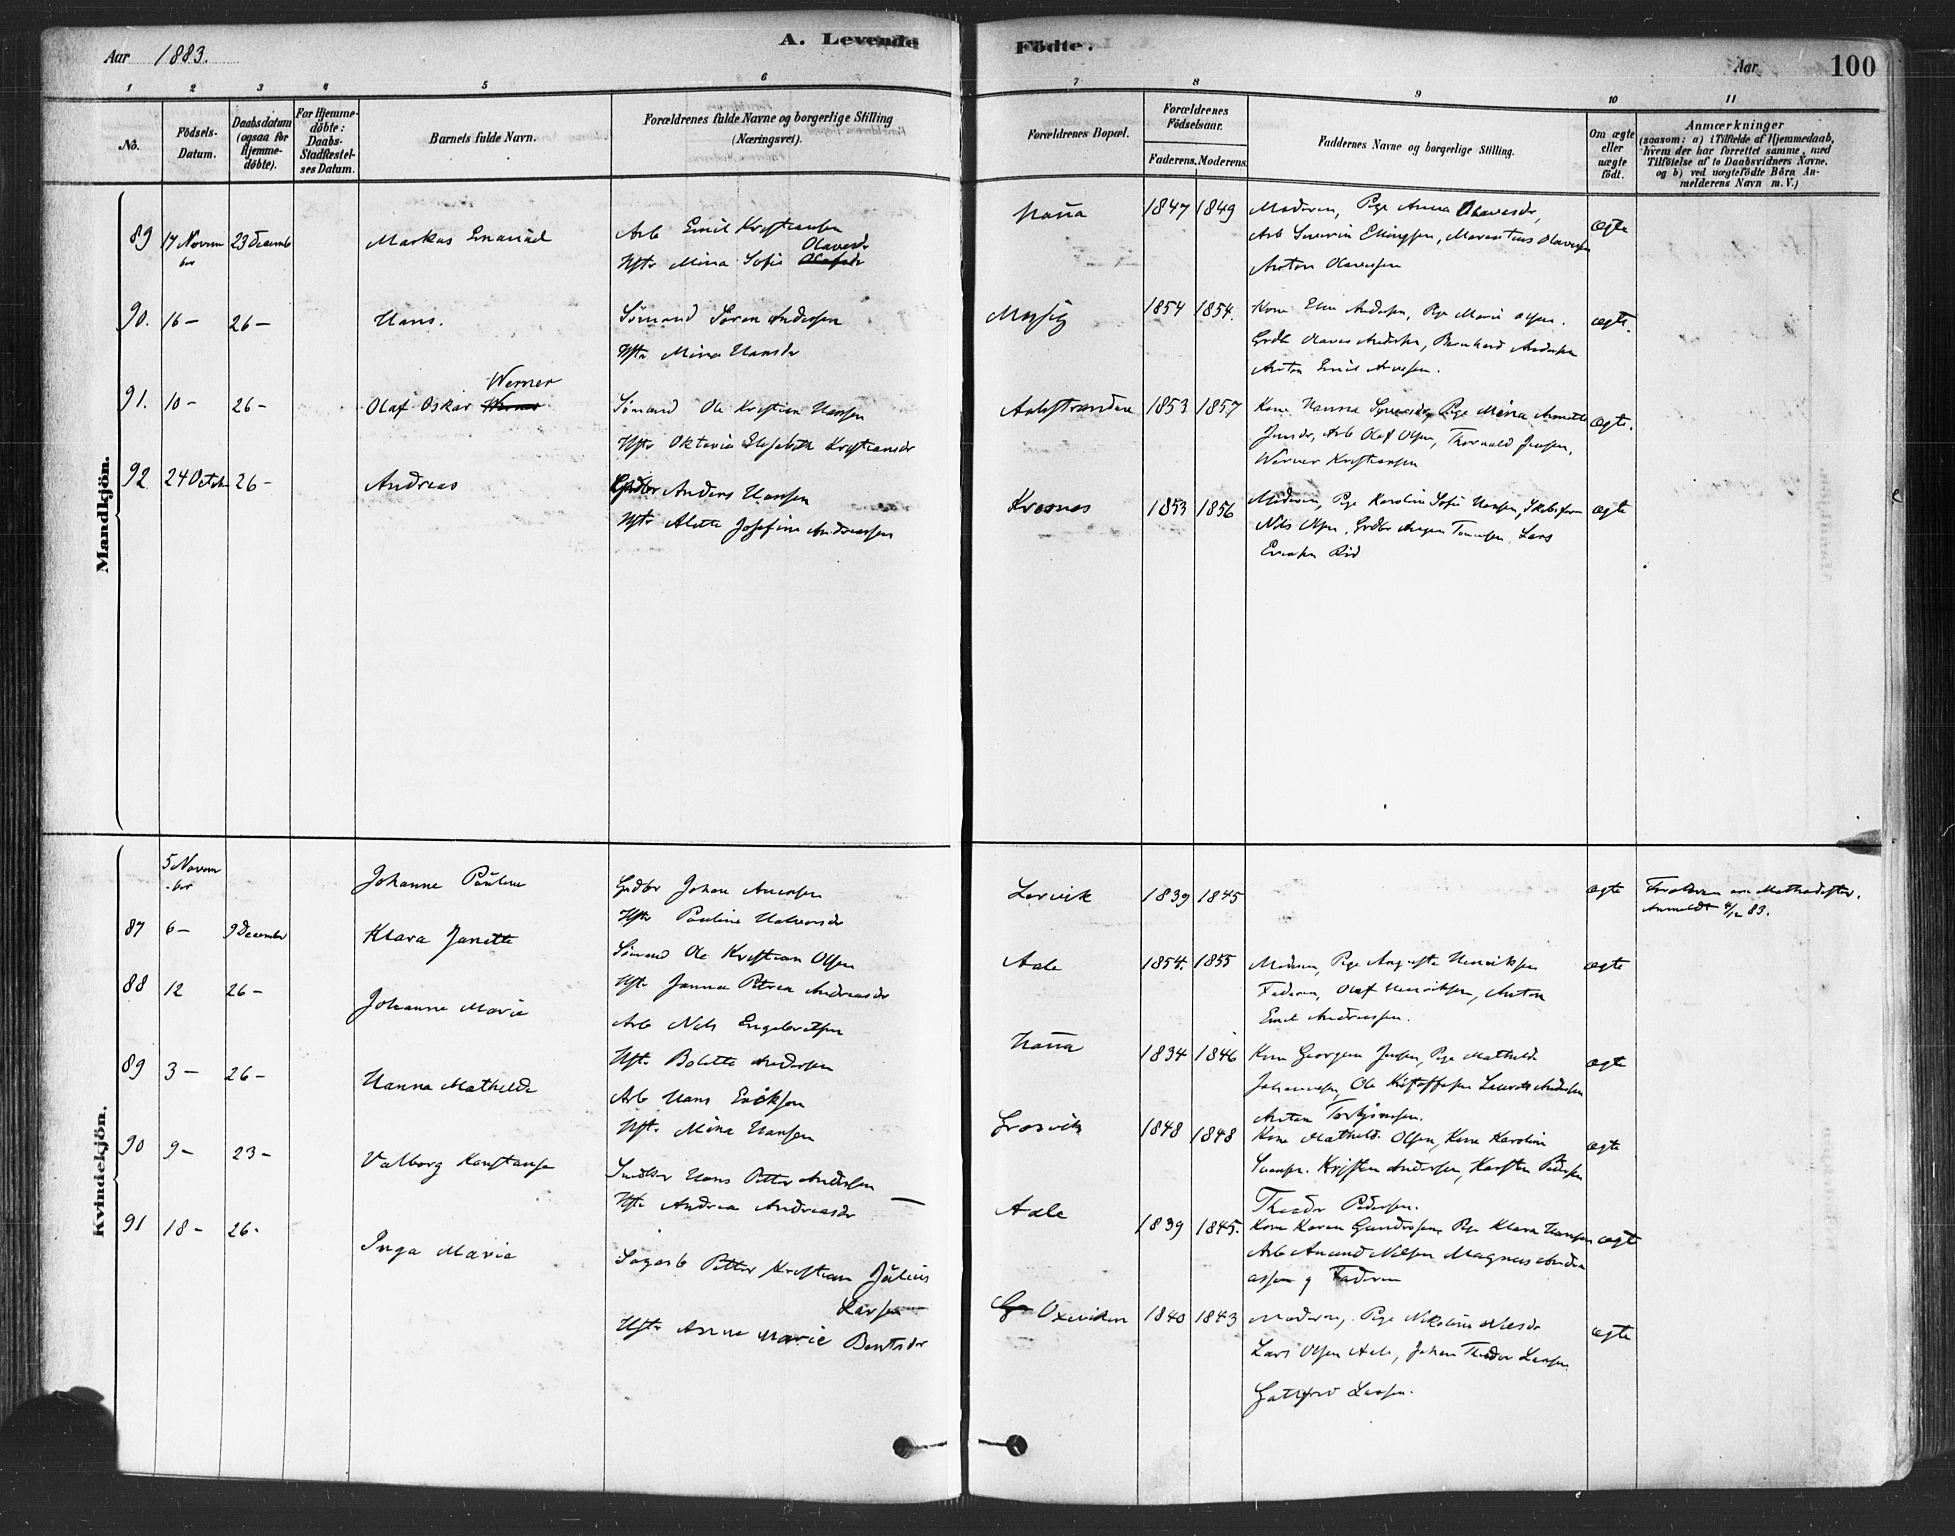 Aar 1883.
A. Levende
Födte.
Aar
100
1 2 3 4 5 6 7 8 9 10 11
No.
Födsels-
Datum.
Daabsdatum
(ogsaa for
Hjemme-
döbte).
For Hjemme-
döbte:
Daabs-
Stadfæstel-
ses Datum.
Barnets fulde Navn.
Forældrenes fulde Navne og borgerlige Stilling
(Næringsvei).
Forældrenes Bopæl.
Forældrenes
Födselsaar.
Faderens. Moderens.
Faddernes Navne og borgerlige Stilling.
Om ægte
eller
uægte
födt.
Anmærkninger
(saasom: a) i Tilfælde af Hjemmedaab,
hvem der har forrettet samme, med
Tilföielse af to Daabsvidners Navne.
og b) ved uægtefödte Börn An-
melderens Navn m. V.)
Mandkjön.
89 17 Novem
ber
23 Decemb
Markus Emanuel
Arb Emil Kristiansen
Olavesdr
Hstr Mina Sofie Olafsdr
1847 1849
Moderen, Pige Anna Olavesdr,
Arb Severin Ellingsen, Olavesen
Anton Olavesen
ægte
90. 16 – 26 –
Hans.
Sömand Sören Andersen
Hstr Mina Hansdr
1854 1854.
Kone Andersen, Pige Marie Olsen.
Grdbr Olaves Andersen, Bernhard Andersen
Anton Emil
ægte.
91. 10 – 26 –
Werner
Olaf Oskar Werner
Sömand Ole Kristian Hansen
Hstr Oktavia Elisabeth Kristiansdr
Aalestranden
1853 1857
Kone Hanna Pige Mina Annette
Jensdr, Arb Olaf Olsen, Thorvald Jensen,
Werner Kristiansen
ægte.
92 24 Octob 26 –
Andreas
Grdbr Anders Hansen
Hstr Alette Josefine Andreassen
Krosnes
1853 1856
Moderen, Pige Karoline Sofie Hansen,
Nils Olsen, Grdbr Lars
ægte
Kvindekjön.
5 Novem
ber
Johanne Pauline
Grdbr Johan
Hstr Pauline Halvorsdr
Lervik
1839 1845
ægte
Forældrene ere Methodister.
Anmeldt 4/12 83.
87 6 – 9 December
Klara Janette
Sömand Ole Kristian Olsen
Hstr Janna Petrea Andreasdr
Aale
1854. 1855
Moderen, Pige Augusta Henriksen
Faderen, Olaf Henriksen, Anton
Emil Andreassen.
ægte
88 12 26 –
Johanne Marie
Arb Nils Engebretsen
Hstr Bolette Andersen
1834 1846
Kone Georgine Jensen, Pige Mathilde
Johannesen, Ole Kristoffersen Laurits Andersen
Anton Torbjörnsen.
ægte
89 3 – 26 –
Hanna Mathilde
Arb Hans Eriksen
Hstr. Mina Hansen
Grosvik
1848 1848
Kone Mathilde Olsen, Kone Karoline
Svensen. Kristen Andersen, Karsten Pedersen
Theodor Pedersen.
ægte
90 9 – 23 –
Valborg Konstanse
Hans Petter Andersen
Hstr Andrea Andreasdr
Aale
1839 1845.
Kone Karen Gundersen, Pige Klara Hansen
Arb Amund Nilsen Magnus Andre-
assen og Faderen
ægte
91 18 – 26 –
Inga Marie
Sagarb Petter Kristian Julius
Larsen
Hstr Anne Marie Berntsdr
Oxeviken
1840 1843
Moderen, Pige Nikoline Nilsdr
Lars Olsen Aale, Johan Theodor Larsen
Gotfred Larsen.
ægte